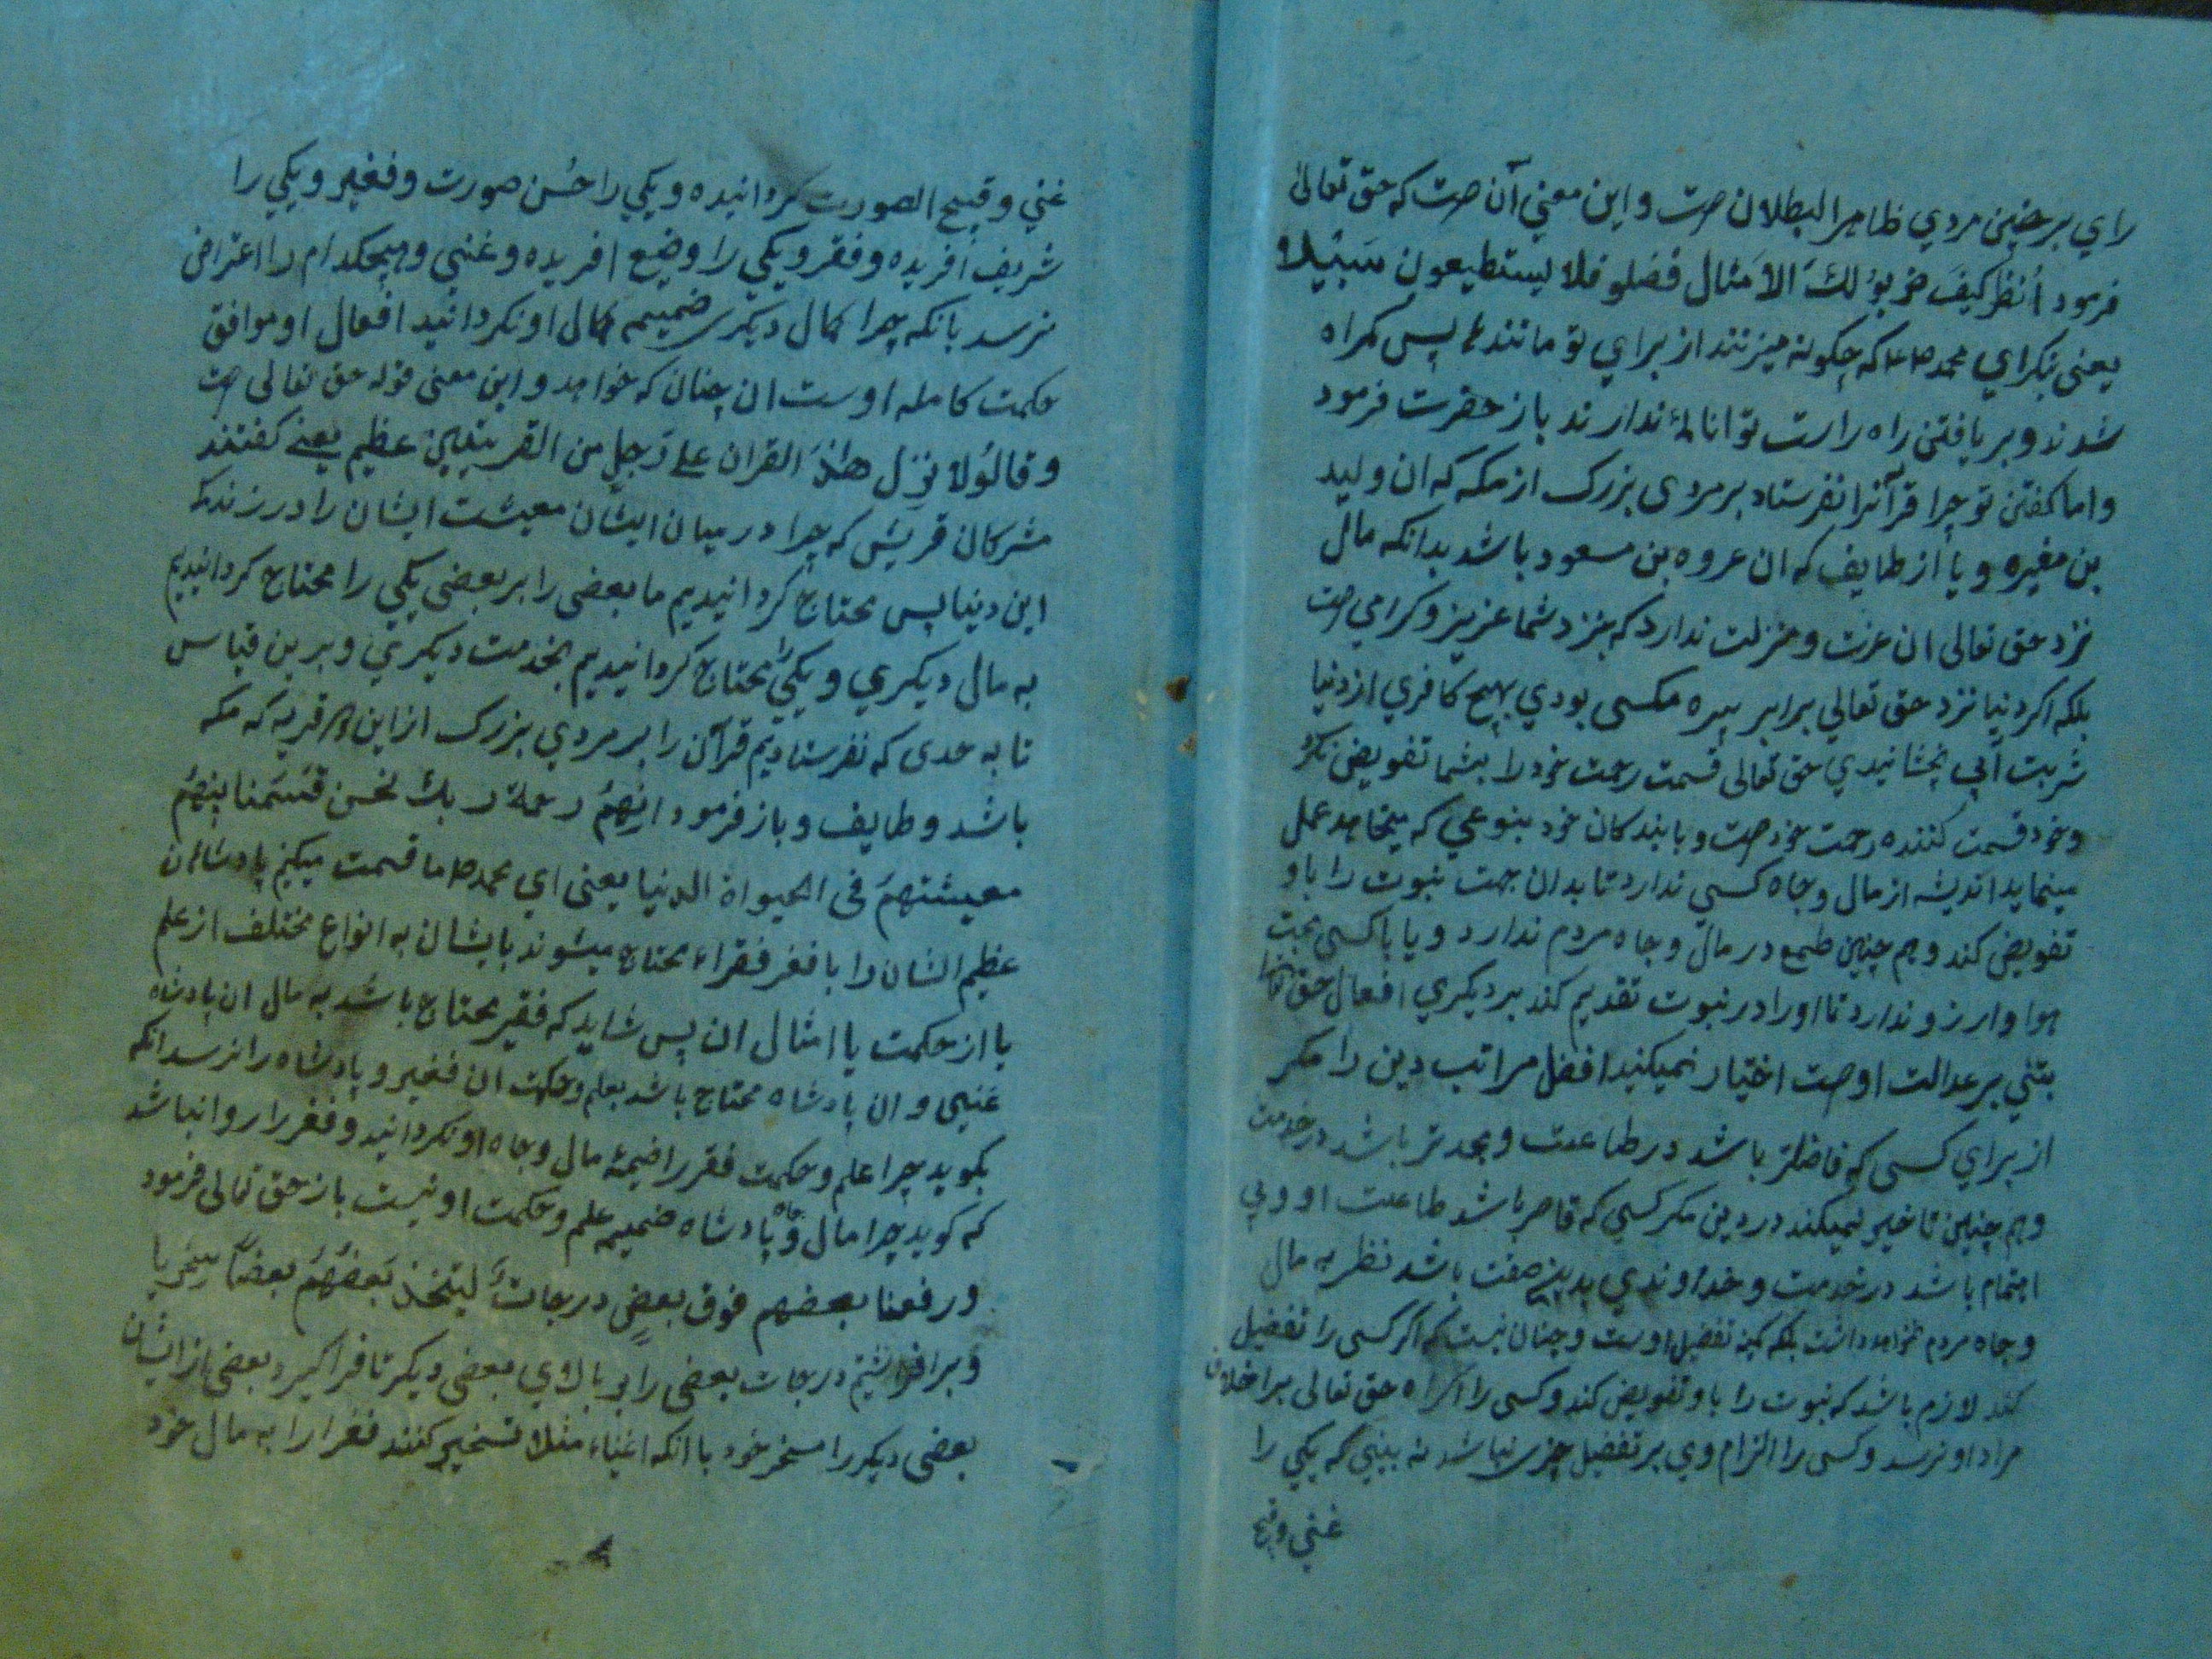 راي بر چنين مردي ظاهر البطلان صت و اين معني آن صت كه حق تعالى
فرمود اُنظر كيفَ ضربوُ لكَ الاَمثال فضلو فلا يستطيعون سَبيلا
يعنى بنكر اي محمد ص كه چكونه ميزنند از براي تو مانندها پس كمراه
شدند و بر يافتن راه راست توانائ ندارند باز حضرت فرمود
واما كفتن تو چرا قرآنرا نفرستاد بر مردى بزرك از مكه كه ان وليد
بن مغيره و يا از طايف كه ان عروه بن مسعود باشد بدانكه مال
نزد حق تعالى ان عزت و منزلت ندارد كه بنزد شما عزيز و كرامي صت
بلكه اكر دنيا نزد حق تعالي برابر پره مكسى بودي بهيچ كافري از دنيا
شربت آبى نچشانيدي حق تعالى قسمت رحمت خود را بشما تفويض نكرد
وخود قسمت كننده رحمت خود صت و با بندكان خود بنوعي كه ميخاهد عمل
مينمايد انديشه از مال و جاه كسي ندارد تا بدان جهت نبوت را باو
تفويض كند و هم چنين طمع در مال و جاه مردم ندارد و يا با كسى محبت
هوا و ارزو ندارد تا او را در نبوت تقديم كند بر ديكري افعال حق تعالى
بتني بر عدالت اوصت اختيار نميكند افضل مراتب دين را مكر
از براي كسى كه فاضلتر باشد در طاعت و بجدتر باشد در خدمت
وهم چنين تاخير نميكند در دين مكر كسي كه قاصر باشد طاعت او و بي
اهتمام باشد در خدمت و خداوندي بدين صفت باشد نظر به مال
و جاه مردم نخواهد داشت بلكه تفضيل اوست و چنان نيست كه اكر كسى را تفضيل
كند لازم باشد كه نبوت را باو تفويض كند و كسى را اكراه حق تعالى بر اخلاف
مراد او نرسد و كسى را الزام وي بر تفضيل چيزى نباشد نه بيني كه يكي را
غني و قبح
غني و قبيح الصورت كردانيده و يكي را حُسن صورت و فقير و يكي را
شريف افريده و فقر و يكي را وضيع افريده و غني و هيچكدام را اعتراض
نرسد بانكه چرا كمال ديكرى ضميمه كمال او نكردانيد افعال او موافق
حكمت كامله اوست ان چنان كه خواهد و اين معنى قوله حق تعالى صت
و قالوُلا نزِل هذَ القران على رَجلٍ من القريتين عظيم يعنے كفتند
مشركان قريش كه چرا در ميان ايشان معيشت ايشان را در زندكى
اين دنيا پس محتاج كردانيديم ما بعضى را بر بعضى يكي را محتاج كردانيديم
به مال ديكري و يكي را محتاج كردانيديم بخدمت ديكري و برين قياس
تا به حدى كه نفرستاديم قرآن را بر مردي بزرك از اين قريه كه مكه
باشد و طايف و باز فرمود اهُمُ رحمة ربك نحن قسَمنا بينهُم
معيشتهمَ فى الحيواة الدنيا يعنى اي محمد ص ما قسمت ميكنيم پادشاهان
عظيم الشان را با فقر فقراء محتاج ميشوند بايشان به انواع مختلف از علم
يا از حكمت يا امثال ان پس شايد كه فقير محتاج باشد به مال ان پادشاه
غني و ان پادشاه محتاج باشد بعلم و حكمت ان فقير و پادشاه را نرسد انكه
بكويد چرا علم و حكمت فقر را ضميمه مال و جاه او نكردانيد و فقر را روا نباشد
كه كويد چرا مال و جاه پادشاه ضميمه علم و حكمت او نيست باز حق تعالى فرمود
و رفعنا بعضهم فوق بعضٍ درجات ليتخذ بَعضُهُم بعضاً سخريا
و برافراشتيم درجات بعضى را بر بالاي بعضى ديكر تا فراكيرد بعضى از ايشان
بعضى ديكر را مسخر خود با انكه اغنياء مثلا تسخير كنند فقرا را به مال خود